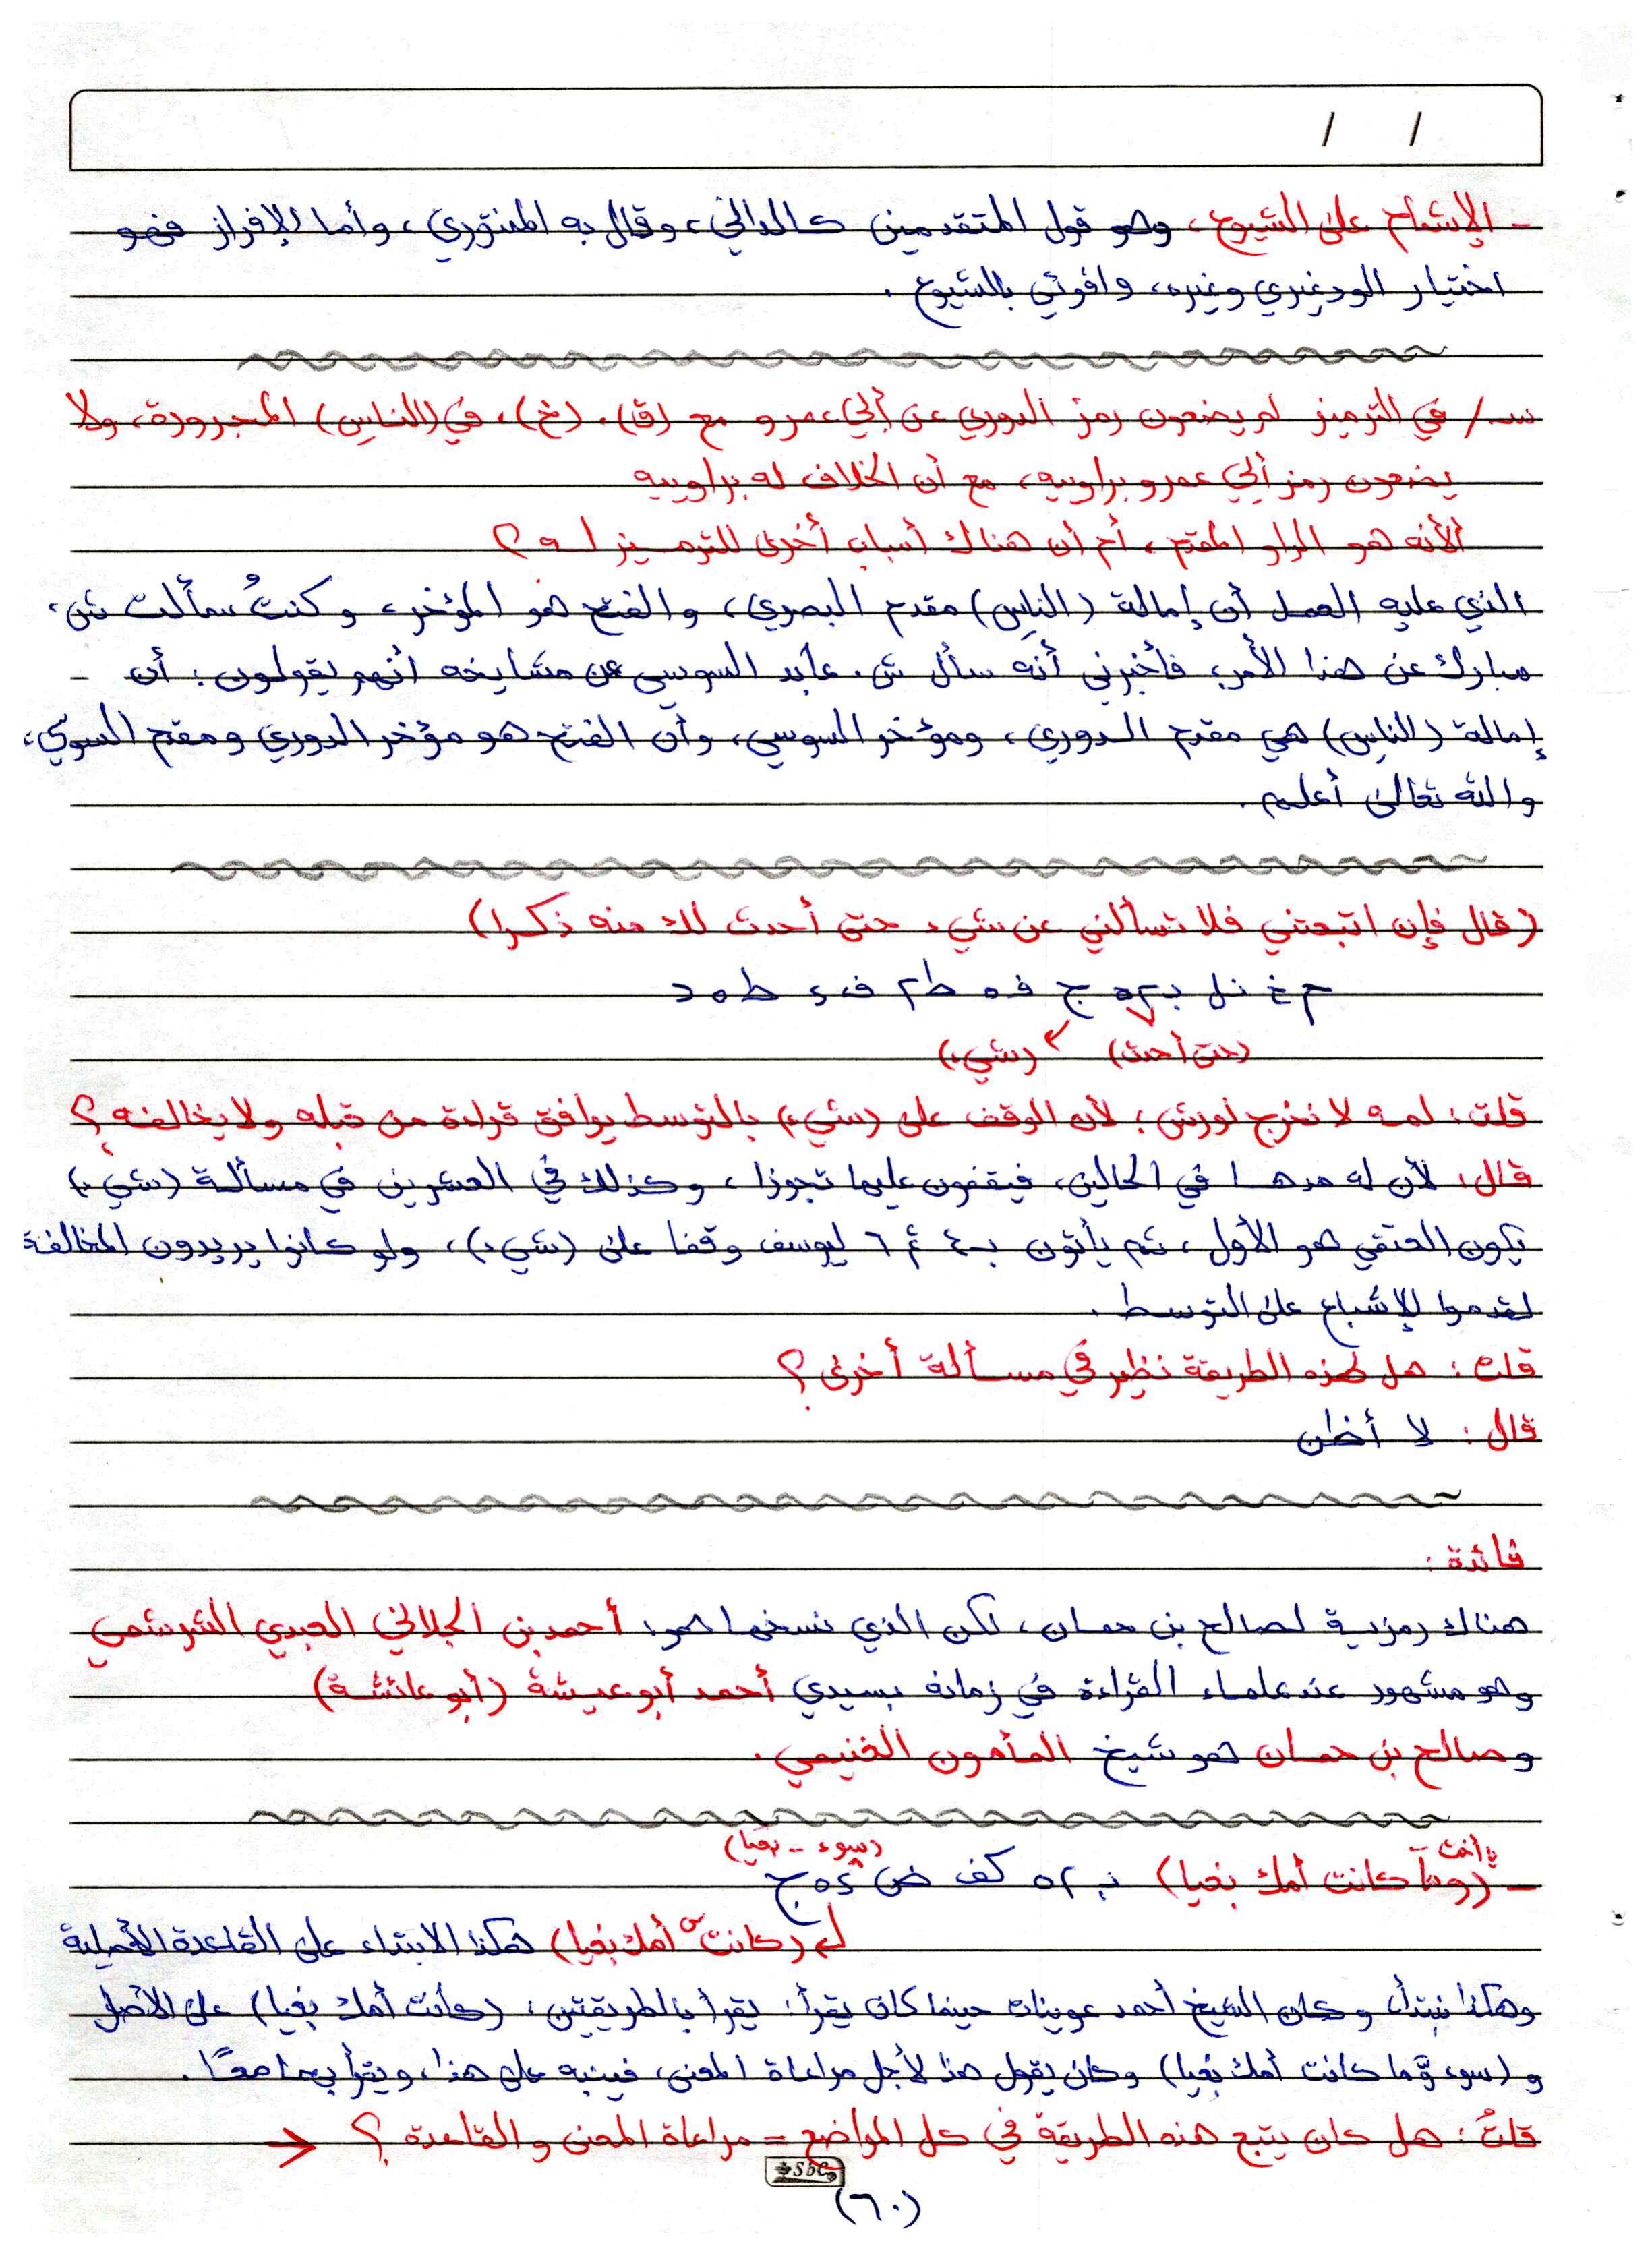 / /
- الإشمام على الشيوع، وهو قول المتقدمين كالداني، وقال به المنتوري، وأما الإفراز فهو
اختيار الودغيري وغيره، واقرئي بالشيوع.
س/ في الترميز لم يضعون رمز الدوري عن أبي عمرو مع (ق)، (خ)، في (الناس) المجرورة، ولا
يضعون رمز أبي عمرو براوييه، مع أن الخلاف له براوييه
ألأنه هو الراو المقدم، أم أن هناك أسباب أخرى للترميز له؟
الذي عليه العمل أن إمالة (الناس) مقدم البصري، والفتح هو المؤخر، وكنتُ سألت ش.
مبارك عن هذا الأمر، فأخبرني أنه سأل ش. عابد السوسي عن مشايخه أنهم يقولون: أن -
إمالة (الناس) هي مقدم الدوري، ومؤخر السوسي، وأن الفتح هو مؤخر الدوري ومقدم السوسي،
والله تعالى أعلم.
(قال فإن اتبعتني فلا تسألني عن شيء حتى أحدث لك منه ذكرا)
(حتى أحدث) (شيء)
قلت: لمه لا نخرج لورش؛ لأنه الوقف على (شيء) بالتوسط يوافق قراءة من قبله ولا يخالفه؟
قال: لأن له مدها في الحالين، فيقفون عليها تجوزا، وكذلك في العشرين في مسألة (شيء)
يكون العتقي هو الأول، ثم يأتون بـ٤ ثم ٦ ليوسف وقفا على (شيء)، ولو كانوا يريدون المخالفة
لقدموا الإشباع على التوسط.
قلت: هل لهذه الطريقة نظير في مسألة أخرى؟
قال: لا أظن
فائدة:
هناك رمزية لصالح بن حمان، لكن الذي نسخها هو: أحمد بن الجلالي العبدي الشرشمي
وهو مشهور عند علماء القراءة في زمانه بسيدي أحمد أبو عيشة (أبو عائشة)
وصالح بن حمان هو شيخ المأمون الغنيمي.
يا أخت - (سوء - بغيا)
- (وما كانت أمك بغيا) ب ٢ ٥ كف ض ٤ ٥ ج
(كانت أمك بغيا) هكذا الابتداء على القاعدة الأصلية
وهكذا نبتدأ، وكان الشيخ أحمد عوينات حينما كان يقرأ: يقرأ بالطريقتين: (كانت أمك بغيا) على الأصل
و(سوء وما كانت أمك بغيا) وكان يقول هذا لأجل مراعاة المعنى، فينبه على هذا، ويقرأ بهما معًا.
قلتُ: هل كان يتبع هذه الطريقة في كل المواضع = مراعاة المعنى والقاعدة؟ ←
Sbc
(٦٠)